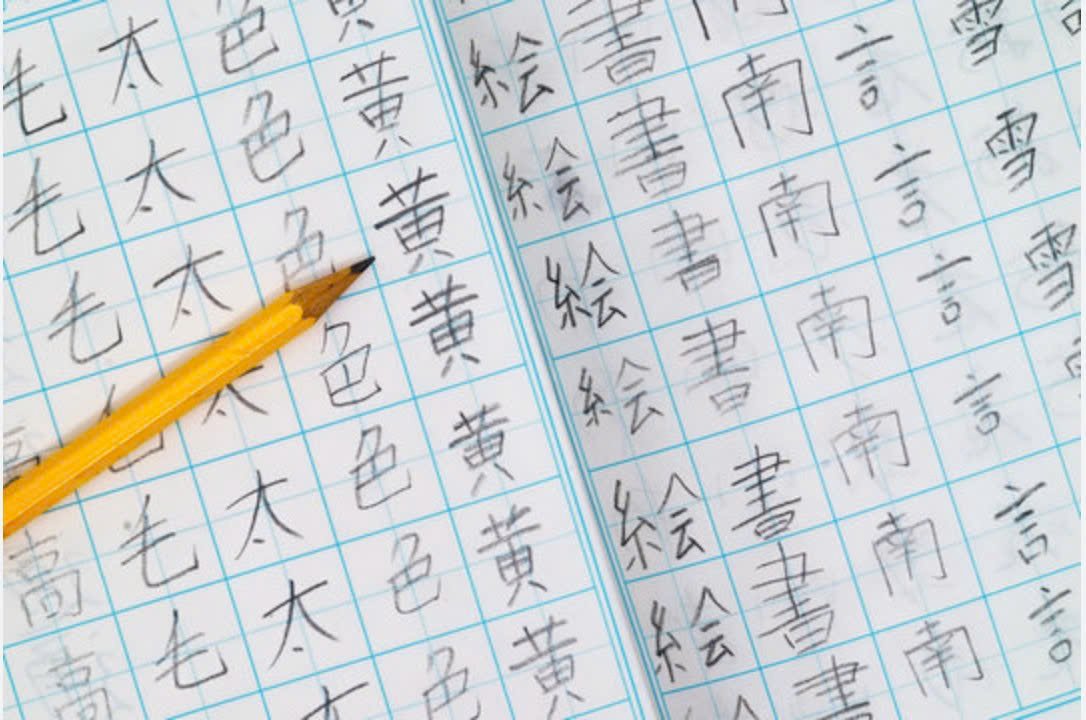 雪雪雪
言言言言言言
南南南南南南
書書書書書書書
絵絵絵絵絵絵
黄黄黄黄黄黄
色色色色色色色
太太太太太太
毛毛毛毛毛毛
高高